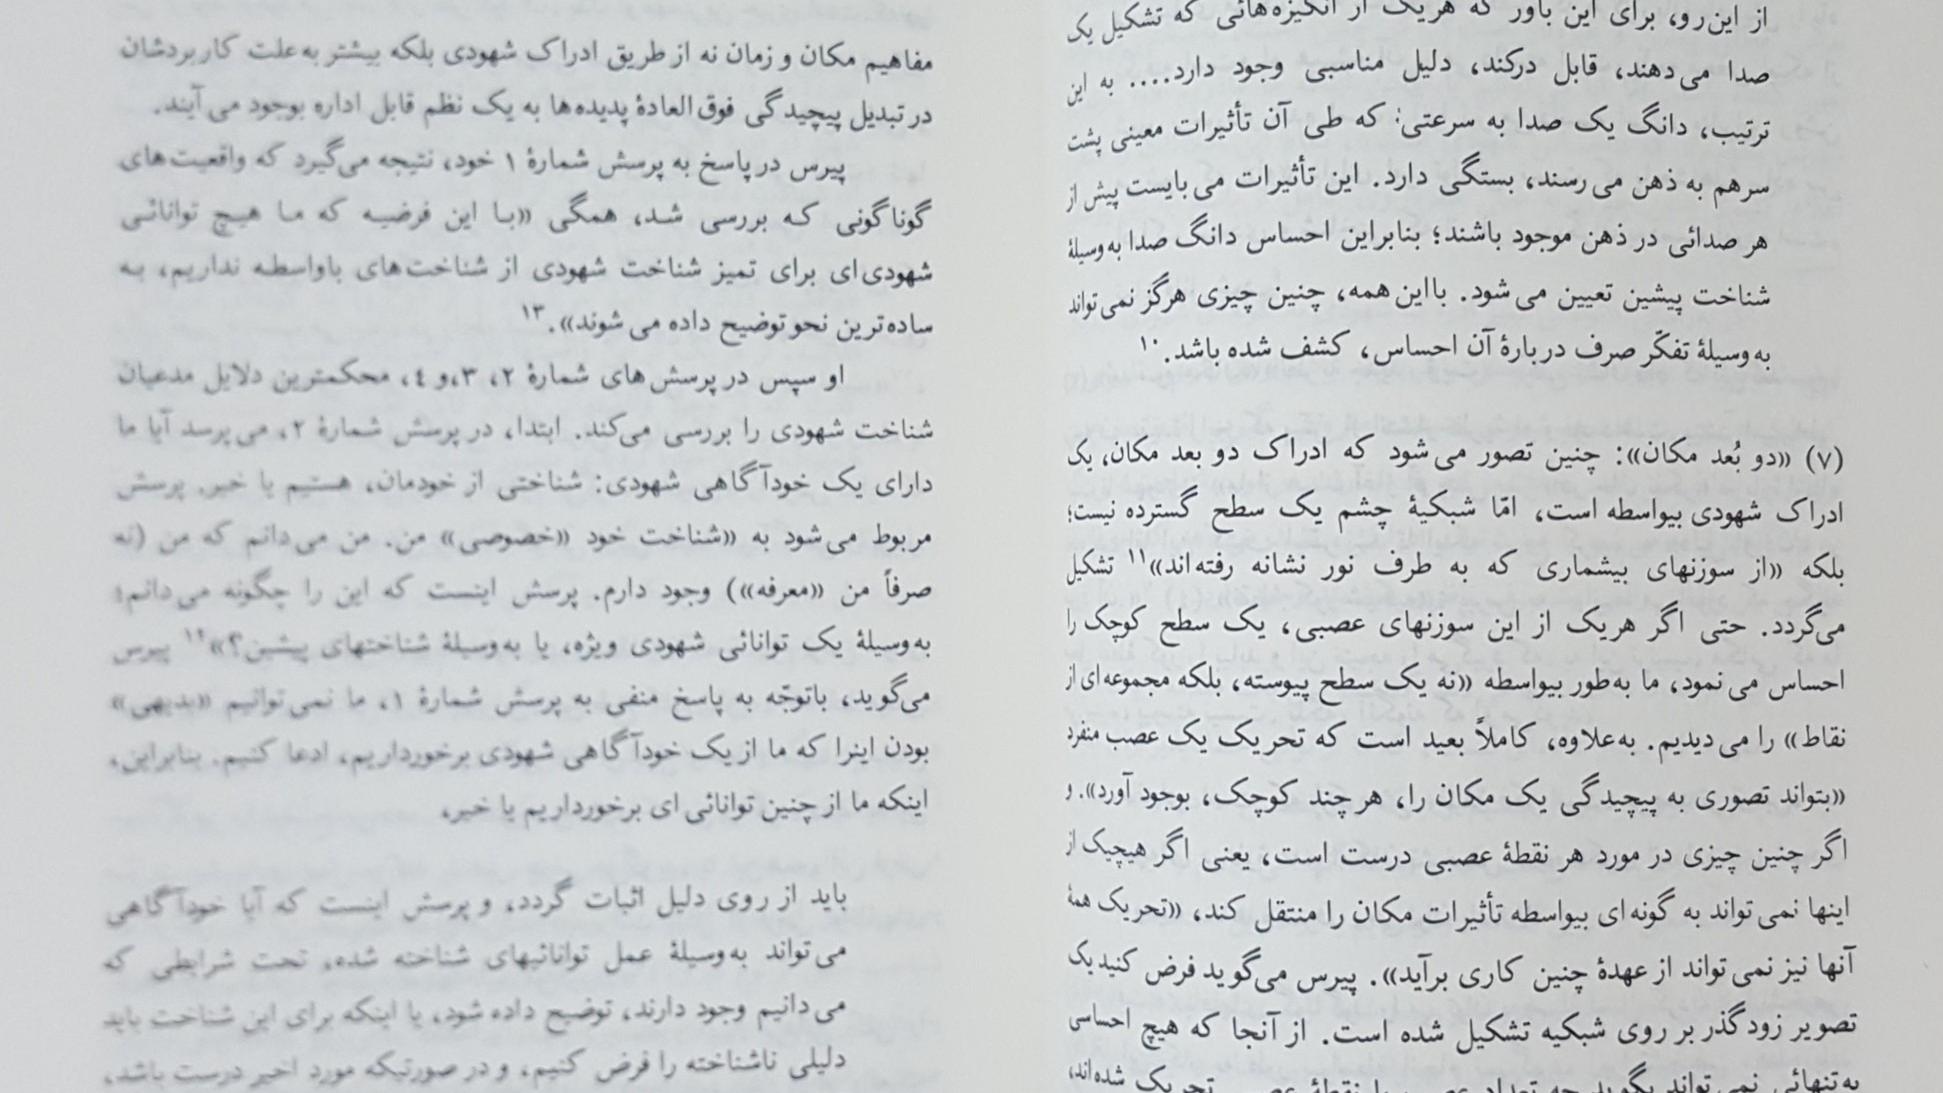 از این‌رو، برای این باور که هریک از انگیزه‌هائی که تشکیل یک
صدا می‌دهند، قابل درکند، دلیل مناسبی وجود دارد.... به این
ترتیب، دانگ یک صدا به سرعتی که طی آن تأثیرات معینی پشت
سرهم به ذهن می‌رسند، بستگی دارد. این تأثیرات می‌بایست پیش از
هر صدائی در ذهن موجود باشند؛ بنابراین احساس دانگ صدا به‌وسیلۀ
شناخت پیشین تعیین می‌شود. بااین‌همه، چنین چیزی هرگز نمی‌تواند
به‌وسیلۀ تفکّر صرف دربارۀ آن احساس، کشف شده باشد.۱۰
(۷) «دو بُعد مکان»: چنین تصور می‌شود که ادراک دو بعد مکان، یک
ادراک شهودی بیواسطه است، امّا شبکیۀ چشم یک سطح گسترده نیست؛
بلکه «از سوزنهای بیشماری که به طرف نور نشانه رفته‌اند»۱۱ تشکیل
می‌گردد. حتی اگر هریک از این سوزنهای عصبی، یک سطح کوچک را
احساس می‌نمود، ما به‌طور بیواسطه «نه یک سطح پیوسته، بلکه مجموعه‌ای از
نقاط» را می‌دیدیم. به‌علاوه، کاملاً بعید است که تحریک یک عصب منفرد
«بتواند تصوری به پیچیدگی یک مکان را، هرچند کوچک، بوجود آورد». و
اگر چنین چیزی در مورد هر نقطۀ عصبی درست است، یعنی اگر هیچیک از
اینها نمی‌تواند به گونه‌ای بیواسطه تأثیرات مکان را منتقل کند، «تحریک همۀ
آنها نیز نمی‌تواند از عهدۀ چنین کاری برآید». پیرس می‌گوید فرض کنید یک
تصویر زودگذر بر روی شبکیه تشکیل شده است. از آنجا که هیچ احساسی
به‌تنهائی نمی‌تواند بگوید چه تعداد عصب یا نقطۀ عصبی تحریک شده‌اند،
مفاهیم مکان و زمان نه از طریق ادراک شهودی بلکه بیشتر به‌علت کاربردشان
در تبدیل پیچیدگی فوق‌العادۀ پدیده‌ها به یک نظم قابل اداره بوجود می‌آیند.
پیرس در پاسخ به پرسش شمارۀ ۱ خود، نتیجه می‌گیرد که واقعیت‌های
گوناگونی که بررسی شد، همگی «با این فرضیه که ما هیچ توانائی
شهودی‌ای برای تمیز شناخت شهودی از شناخت‌های باواسطه نداریم، به
ساده‌ترین نحو توضیح داده می‌شوند».۱۳
او سپس در پرسش‌های شمارۀ ۲، ۳،و ۴، محکمترین دلایل مدعیان
شناخت شهودی را بررسی می‌کند. ابتدا، در پرسش شمارۀ ۲، می‌پرسد آیا ما
دارای یک خودآگاهی شهودی: شناختی از خودمان، هستیم یا خیر. پرسش
مربوط می‌شود به «شناخت خود «خصوصی» من. من می‌دانم که من (نه
صرفاً من «معرفه») وجود دارم. پرسش اینست که این را چگونه می‌دانم؛
به‌وسیلۀ یک توانائی شهودی ویژه، یا به‌وسیلۀ شناختهای پیشین؟»۱۴ پیرس
می‌گوید، باتوجّه به پاسخ منفی به پرسش شمارۀ ۱، ما نمی‌توانیم «بدیهی»
بودن اینرا که ما از یک خودآگاهی شهودی برخورداریم، ادعا کنیم. بنابراین،
اینکه ما از چنین توانائی‌ای برخورداریم یا خیر،
باید از روی دلیل اثبات گردد، و پرسش اینست که آیا خودآگاهی
می‌تواند به‌وسیلۀ عمل توانائیهای شناخته شده، تحت شرایطی که
می‌دانیم وجود دارند، توضیح داده شود، یا اینکه برای این شناخت باید
دلیلی ناشناخته را فرض کنیم، و در صورتیکه مورد اخیر درست باشد،